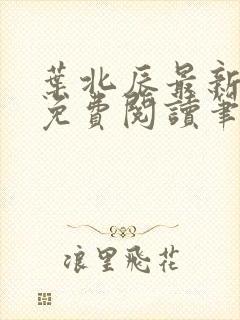 葉北辰最新
免費閱讀筆
浪里飛花